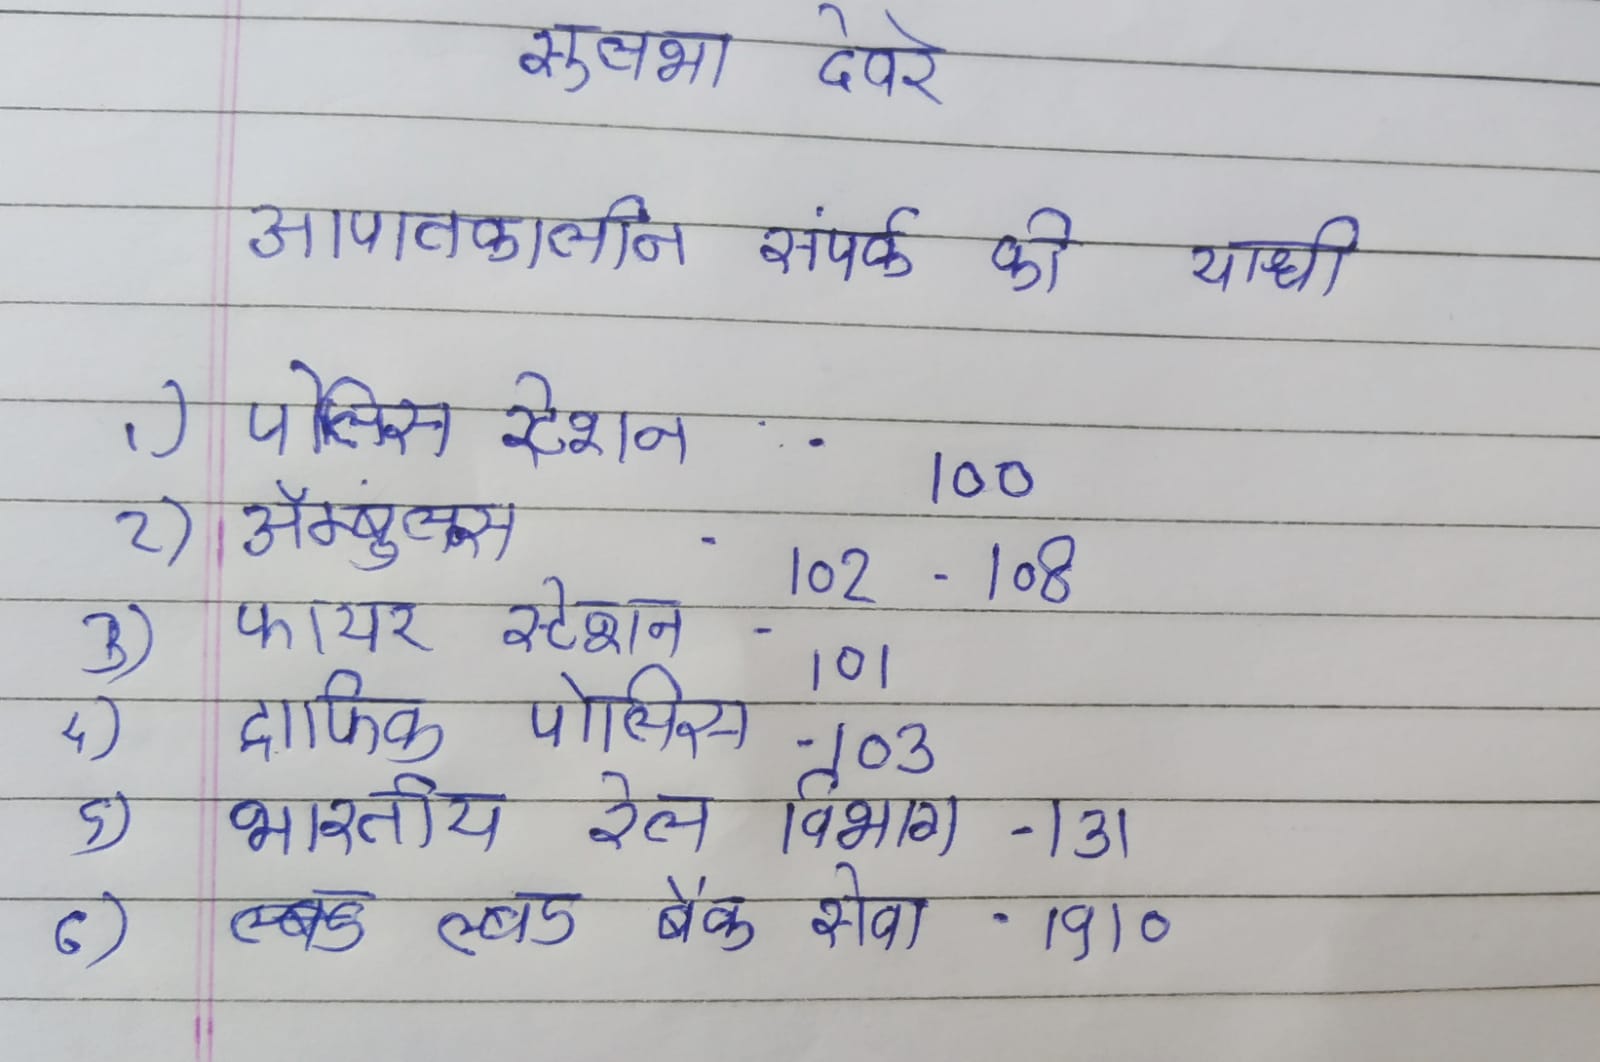 सुलभा देवरे
आपातकालीन संपर्क की याधी
1) पोलिस स्टेशन - 100
2) ॲम्बुलंस - 102 - 108
3) फायर स्टेशन - 101
4) ट्राफिक पोलिस - 103
5) भारतीय रेल विभाग - 131
6) ल्बड बैंक सेवा - 1910